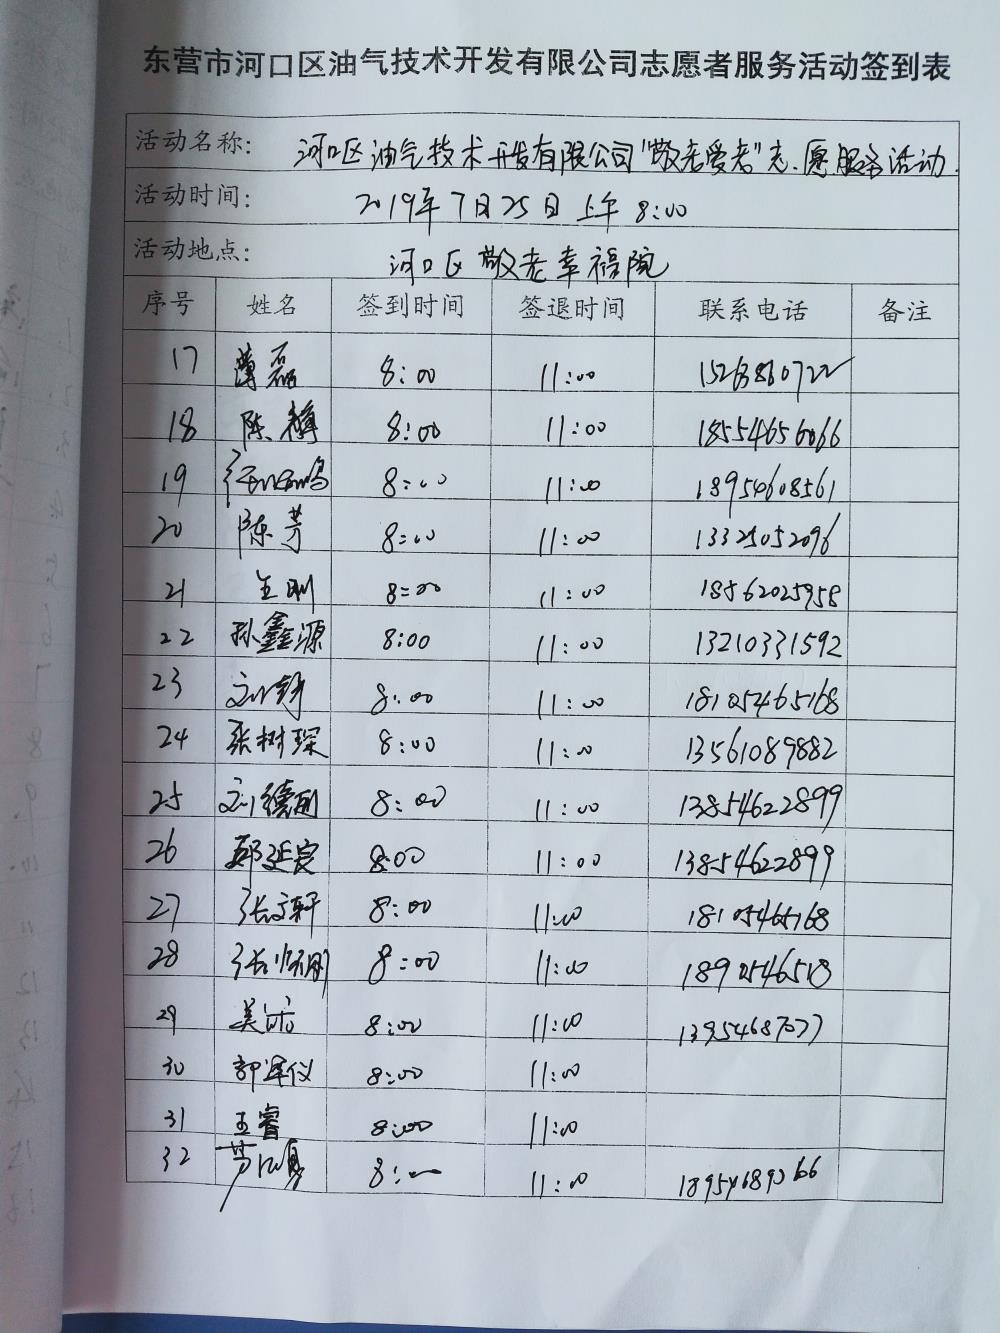 东营市河口区油气技术开发有限公司志愿者服务活动签到表
活动名称: 河口区油气技术开发有限公司"敬老爱老"志愿服务活动.
活动时间: 2019年7月25日上午 8:00
活动地点: 河口区敬老幸福院
序号 姓名 签到时间 签退时间 联系电话 备注
17 薄磊 8:00 11:00
18 陈 8:00 11:00 18554656066
19 8:00 11:00 18954608561
20 陈芳 8:00 11:00 13325052096
21 王刚 8:00 11:00 18562025958
22 孙鑫源 8:00 11:00 13210331592
23 刘 8:00 11:00 18105465168
24 张树琛 8:00 11:00 13561089882
25 刘德 8:00 11:00 13854622899
26 延 8:00 11:00 13854622899
27 张文轩 8:00 11:00 18105465168
28 张 刚 8:00 11:00
29 8:00 11:00 13954687077
30 8:00 11:00
31 王睿 8:00 11:00
32 8:00 11:00 18954689266